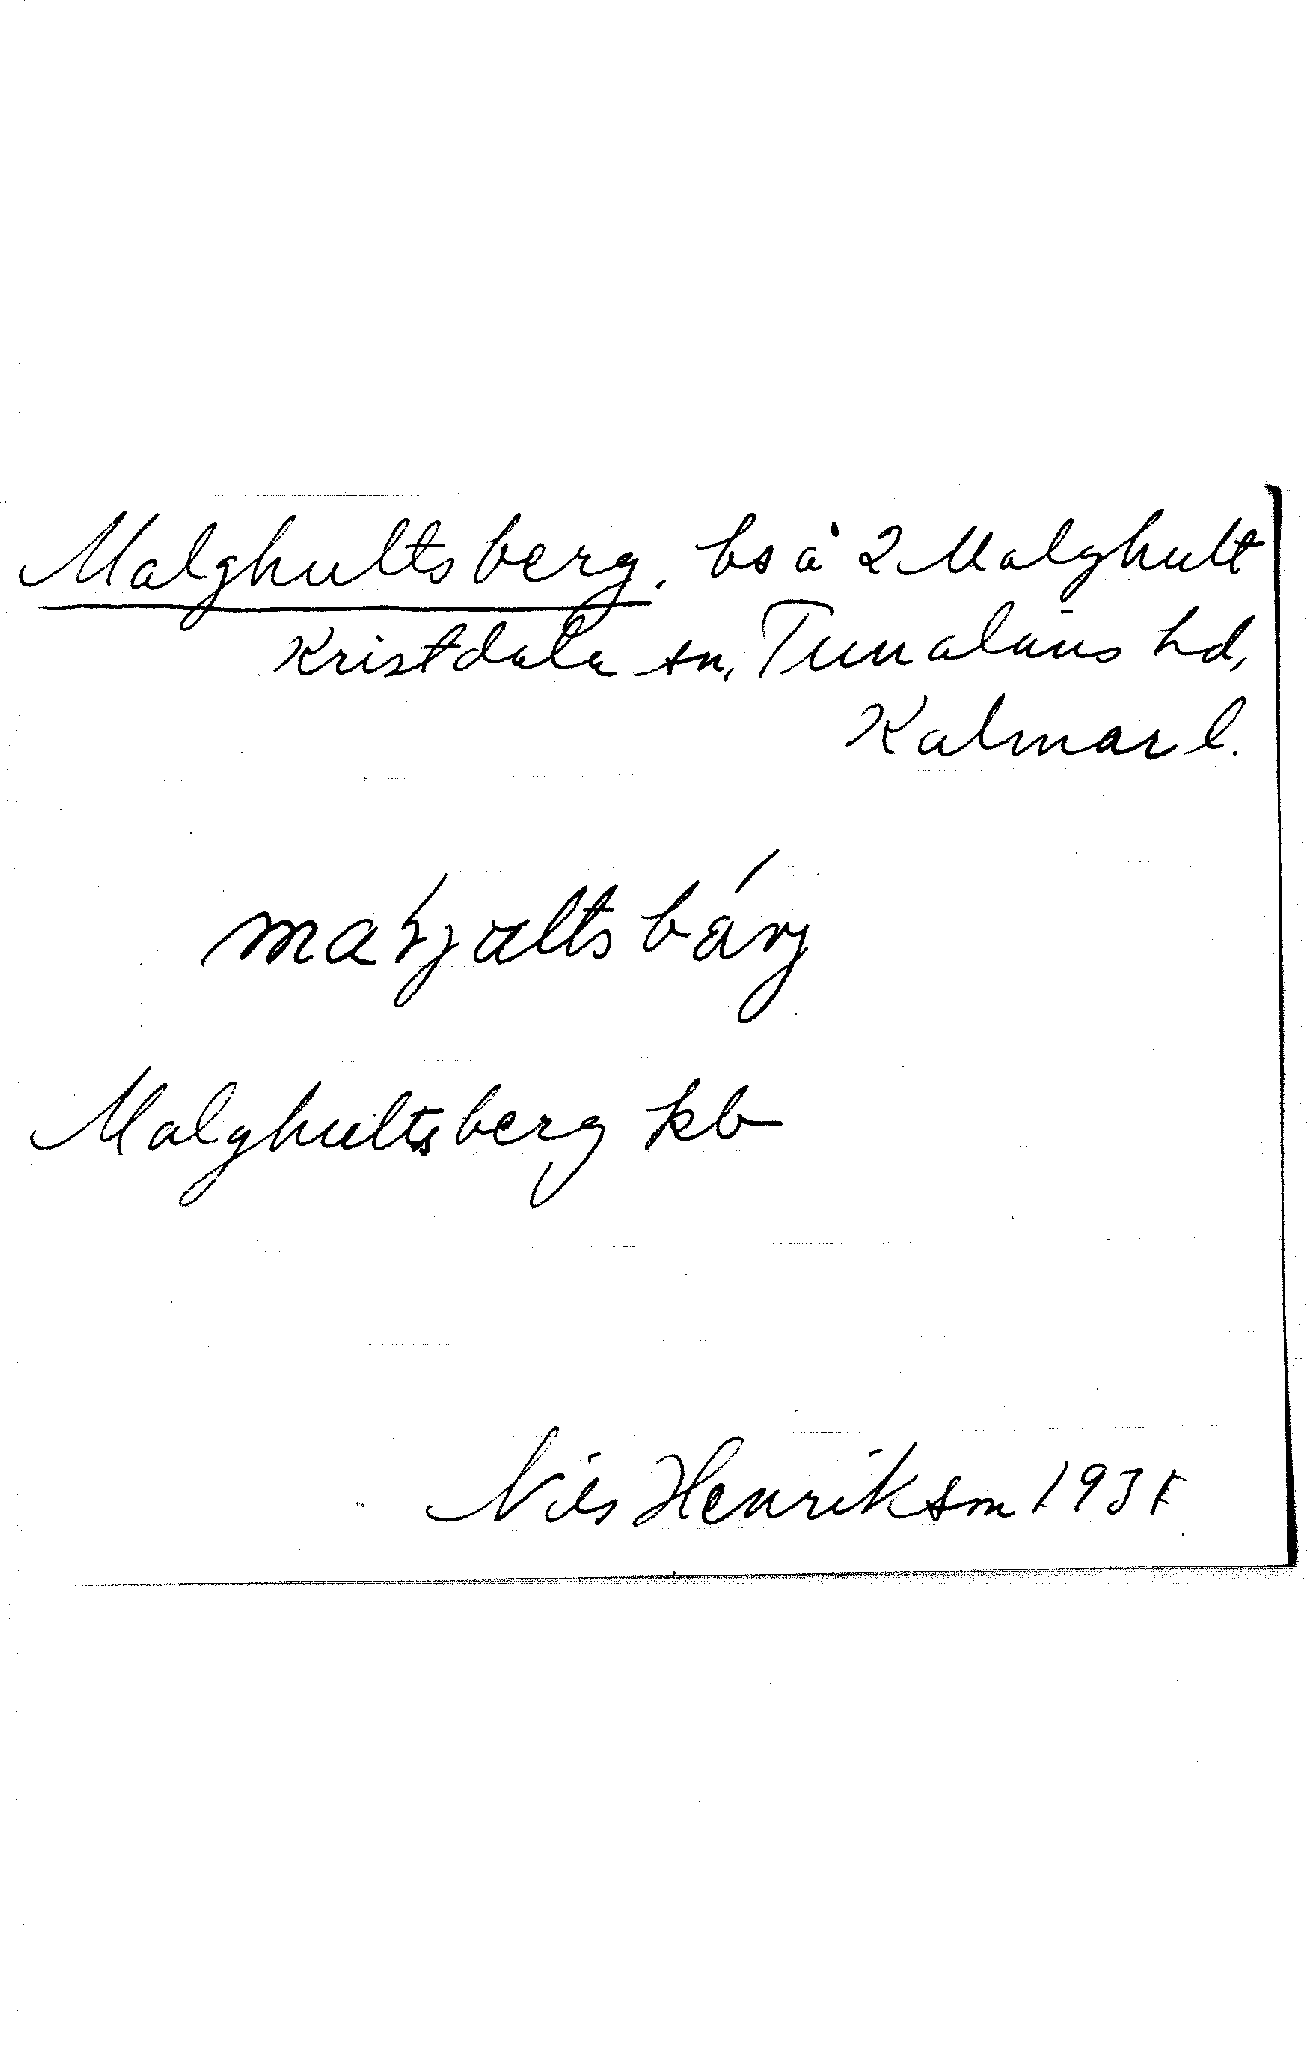 Malghultsberg. bs å 2 Malghult
Kristdala sn, Tunaläns hd,
Kalmar l.
Malghultsberg kb
Nils Henrikson